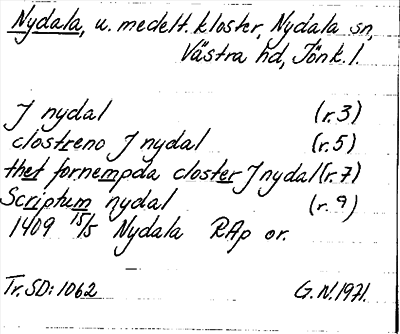 Nydala, u. medelt. kloster, Nydala sn,
Västra hd, Jönk. l.
J nydal (r.3)
clostreno J nydal (r.5)
thet fornempda closter J nydal (r.7)
Scriptum nydal (r.9)
1409 15/5 Nydala RAp or.
Tr. SD: 1062 G.N. 1971.